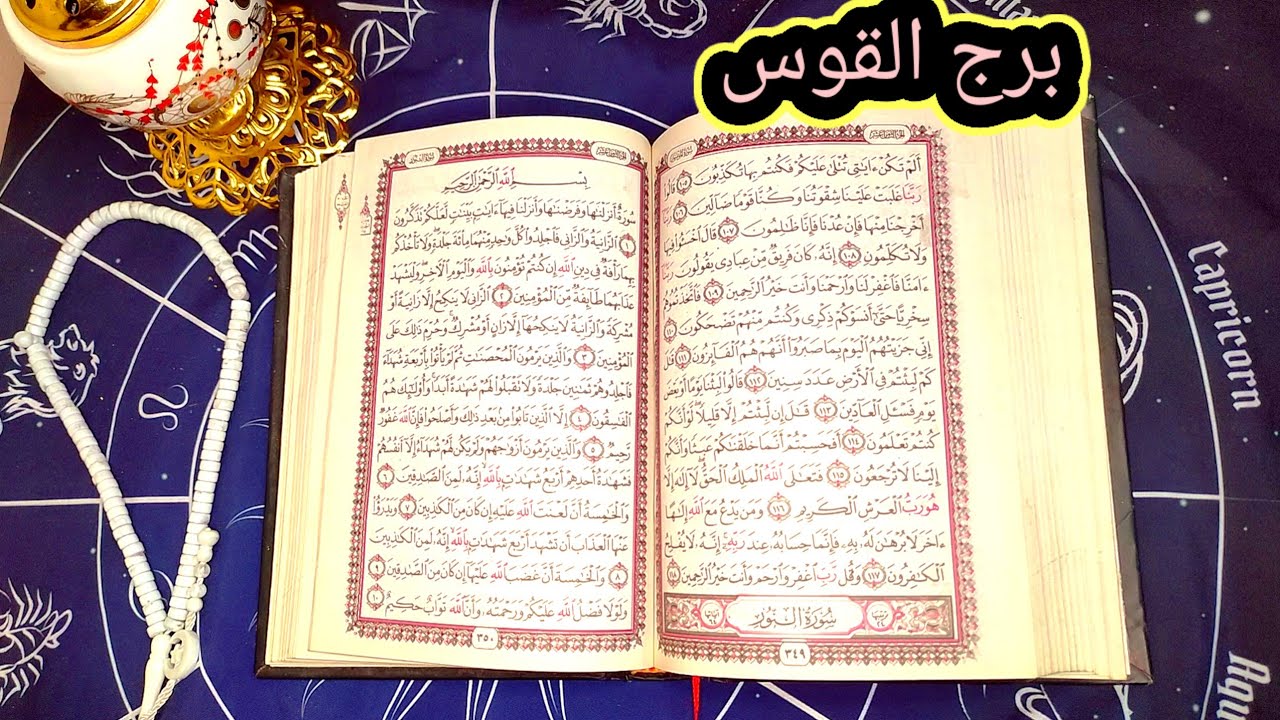 برج القوس
أَلَمْ تَكُنْ ءَايَٰتِى تُتْلَىٰ عَلَيْكُمْ فَكُنتُم بِهَا تُكَذِّبُونَ ١٠٥
رَبَّنَا غَلَبَتْ عَلَيْنَا شِقْوَتُنَا وَكُنَّا قَوْمًا ضَآلِّينَ ١٠٦
أَخْرِجْنَا مِنْهَا فَإِنْ عُدْنَا فَإِنَّا ظَٰلِمُونَ ١٠٧ قَالَ ٱخْسَـُٔوا۟ فِيهَا
وَلَا تُكَلِّمُونِ ١٠٨ إِنَّهُۥ كَانَ فَرِيقٌ مِّنْ عِبَادِى يَقُولُونَ
ءَامَنَّا فَٱغْفِرْ لَنَا وَٱرْحَمْنَا وَأَنتَ خَيْرُ ٱلرَّٰحِمِينَ ١٠٩ فَٱتَّخَذْتُمُوهُمْ
سِخْرِيًّا حَتَّىٰٓ أَنسَوْكُمْ ذِكْرِى وَكُنتُم مِّنْهُمْ تَضْحَكُونَ ١١٠
إِنِّى جَزَيْتُهُمُ ٱلْيَوْمَ بِمَا صَبَرُوٓا۟ أَنَّهُمْ هُمُ ٱلْفَآئِزُونَ ١١١ قَٰلَ
كَمْ لَبِثْتُمْ فِى ٱلْأَرْضِ عَدَدَ سِنِينَ ١١٢ قَالُوا۟ لَبِثْنَا يَوْمًا أَوْ بَعْضَ
يَوْمٍ فَسْـَٔلِ ٱلْعَآدِّينَ ١١٣ قَٰلَ إِن لَّبِثْتُمْ إِلَّا قَلِيلًا لَّوْ أَنَّكُمْ
كُنتُمْ تَعْلَمُونَ ١١٤ أَفَحَسِبْتُمْ أَنَّمَا خَلَقْنَٰكُمْ عَبَثًا وَأَنَّكُمْ
إِلَيْنَا لَا تُرْجَعُونَ ١١٥ فَتَعَٰلَى ٱللَّهُ ٱلْمَلِكُ ٱلْحَقُّ لَآ إِلَٰهَ إِلَّا
هُوَ رَبُّ ٱلْعَرْشِ ٱلْكَرِيمِ ١١٦ وَمَن يَدْعُ مَعَ ٱللَّهِ إِلَٰهًا
ءَاخَرَ لَا بُرْهَٰنَ لَهُۥ بِهِۦ فَإِنَّمَا حِسَابُهُۥ عِندَ رَبِّهِۦٓ إِنَّهُۥ لَا يُفْلِحُ
ٱلْكَٰفِرُونَ ١١٧ وَقُل رَّبِّ ٱغْفِرْ وَٱرْحَمْ وَأَنتَ خَيْرُ ٱلرَّٰحِمِينَ ١١٨
سُورَةُ النُّورِ
٣٤٩
بِسْمِ ٱللَّهِ ٱلرَّحْمَٰنِ ٱلرَّحِيمِ
سُورَةٌ أَنزَلْنَٰهَا وَفَرَضْنَٰهَا وَأَنزَلْنَا فِيهَآ ءَايَٰتٍۭ بَيِّنَٰتٍ لَّعَلَّكُمْ تَذَكَّرُونَ
١ ٱلزَّانِيَةُ وَٱلزَّانِى فَٱجْلِدُوا۟ كُلَّ وَٰحِدٍ مِّنْهُمَا مِا۟ئَةَ جَلْدَةٍ وَلَا تَأْخُذْكُم
بِهِمَا رَأْفَةٌ فِى دِينِ ٱللَّهِ إِن كُنتُمْ تُؤْمِنُونَ بِٱللَّهِ وَٱلْيَوْمِ ٱلْءَاخِرِ وَلْيَشْهَدْ
عَذَابَهُمَا طَآئِفَةٌ مِّنَ ٱلْمُؤْمِنِينَ ٢ ٱلزَّانِى لَا يَنكِحُ إِلَّا زَانِيَةً أَوْ
مُشْرِكَةً وَٱلزَّانِيَةُ لَا يَنكِحُهَآ إِلَّا زَانٍ أَوْ مُشْرِكٌ وَحُرِّمَ ذَٰلِكَ عَلَى
ٱلْمُؤْمِنِينَ ٣ وَٱلَّذِينَ يَرْمُونَ ٱلْمُحْصَنَٰتِ ثُمَّ لَمْ يَأْتُوا۟ بِأَرْبَعَةِ شُهَدَآءَ
فَٱجْلِدُوهُمْ ثَمَٰنِينَ جَلْدَةً وَلَا تَقْبَلُوا۟ لَهُمْ شَهَٰدَةً أَبَدًا وَأُو۟لَٰٓئِكَ هُمُ
ٱلْفَٰسِقُونَ ٤ إِلَّا ٱلَّذِينَ تَابُوا۟ مِنۢ بَعْدِ ذَٰلِكَ وَأَصْلَحُوا۟ فَإِنَّ ٱللَّهَ غَفُورٌ
رَّحِيمٌ ٥ وَٱلَّذِينَ يَرْمُونَ أَزْوَٰجَهُمْ وَلَمْ يَكُن لَّهُمْ شُهَدَآءُ إِلَّآ أَنفُسُهُمْ
فَشَهَٰدَةُ أَحَدِهِمْ أَرْبَعُ شَهَٰدَٰتٍۭ بِٱللَّهِ إِنَّهُۥ لَمِنَ ٱلصَّٰدِقِينَ ٦
وَٱلْخَٰمِسَةُ أَنَّ لَعْنَتَ ٱللَّهِ عَلَيْهِ إِن كَانَ مِنَ ٱلْكَٰذِبِينَ ٧ وَيَدْرَؤُا۟
عَنْهَا ٱلْعَذَابَ أَن تَشْهَدَ أَرْبَعَ شَهَٰدَٰتٍۭ بِٱللَّهِ إِنَّهُۥ لَمِنَ ٱلْكَٰذِبِينَ
٨ وَٱلْخَٰمِسَةَ أَنَّ غَضَبَ ٱللَّهِ عَلَيْهَآ إِن كَانَ مِنَ ٱلصَّٰدِقِينَ ٩
وَلَوْلَا فَضْلُ ٱللَّهِ عَلَيْكُمْ وَرَحْمَتُهُۥ وَأَنَّ ٱللَّهَ تَوَّابٌ حَكِيمٌ ١٠
٣٥٠
Capricorn